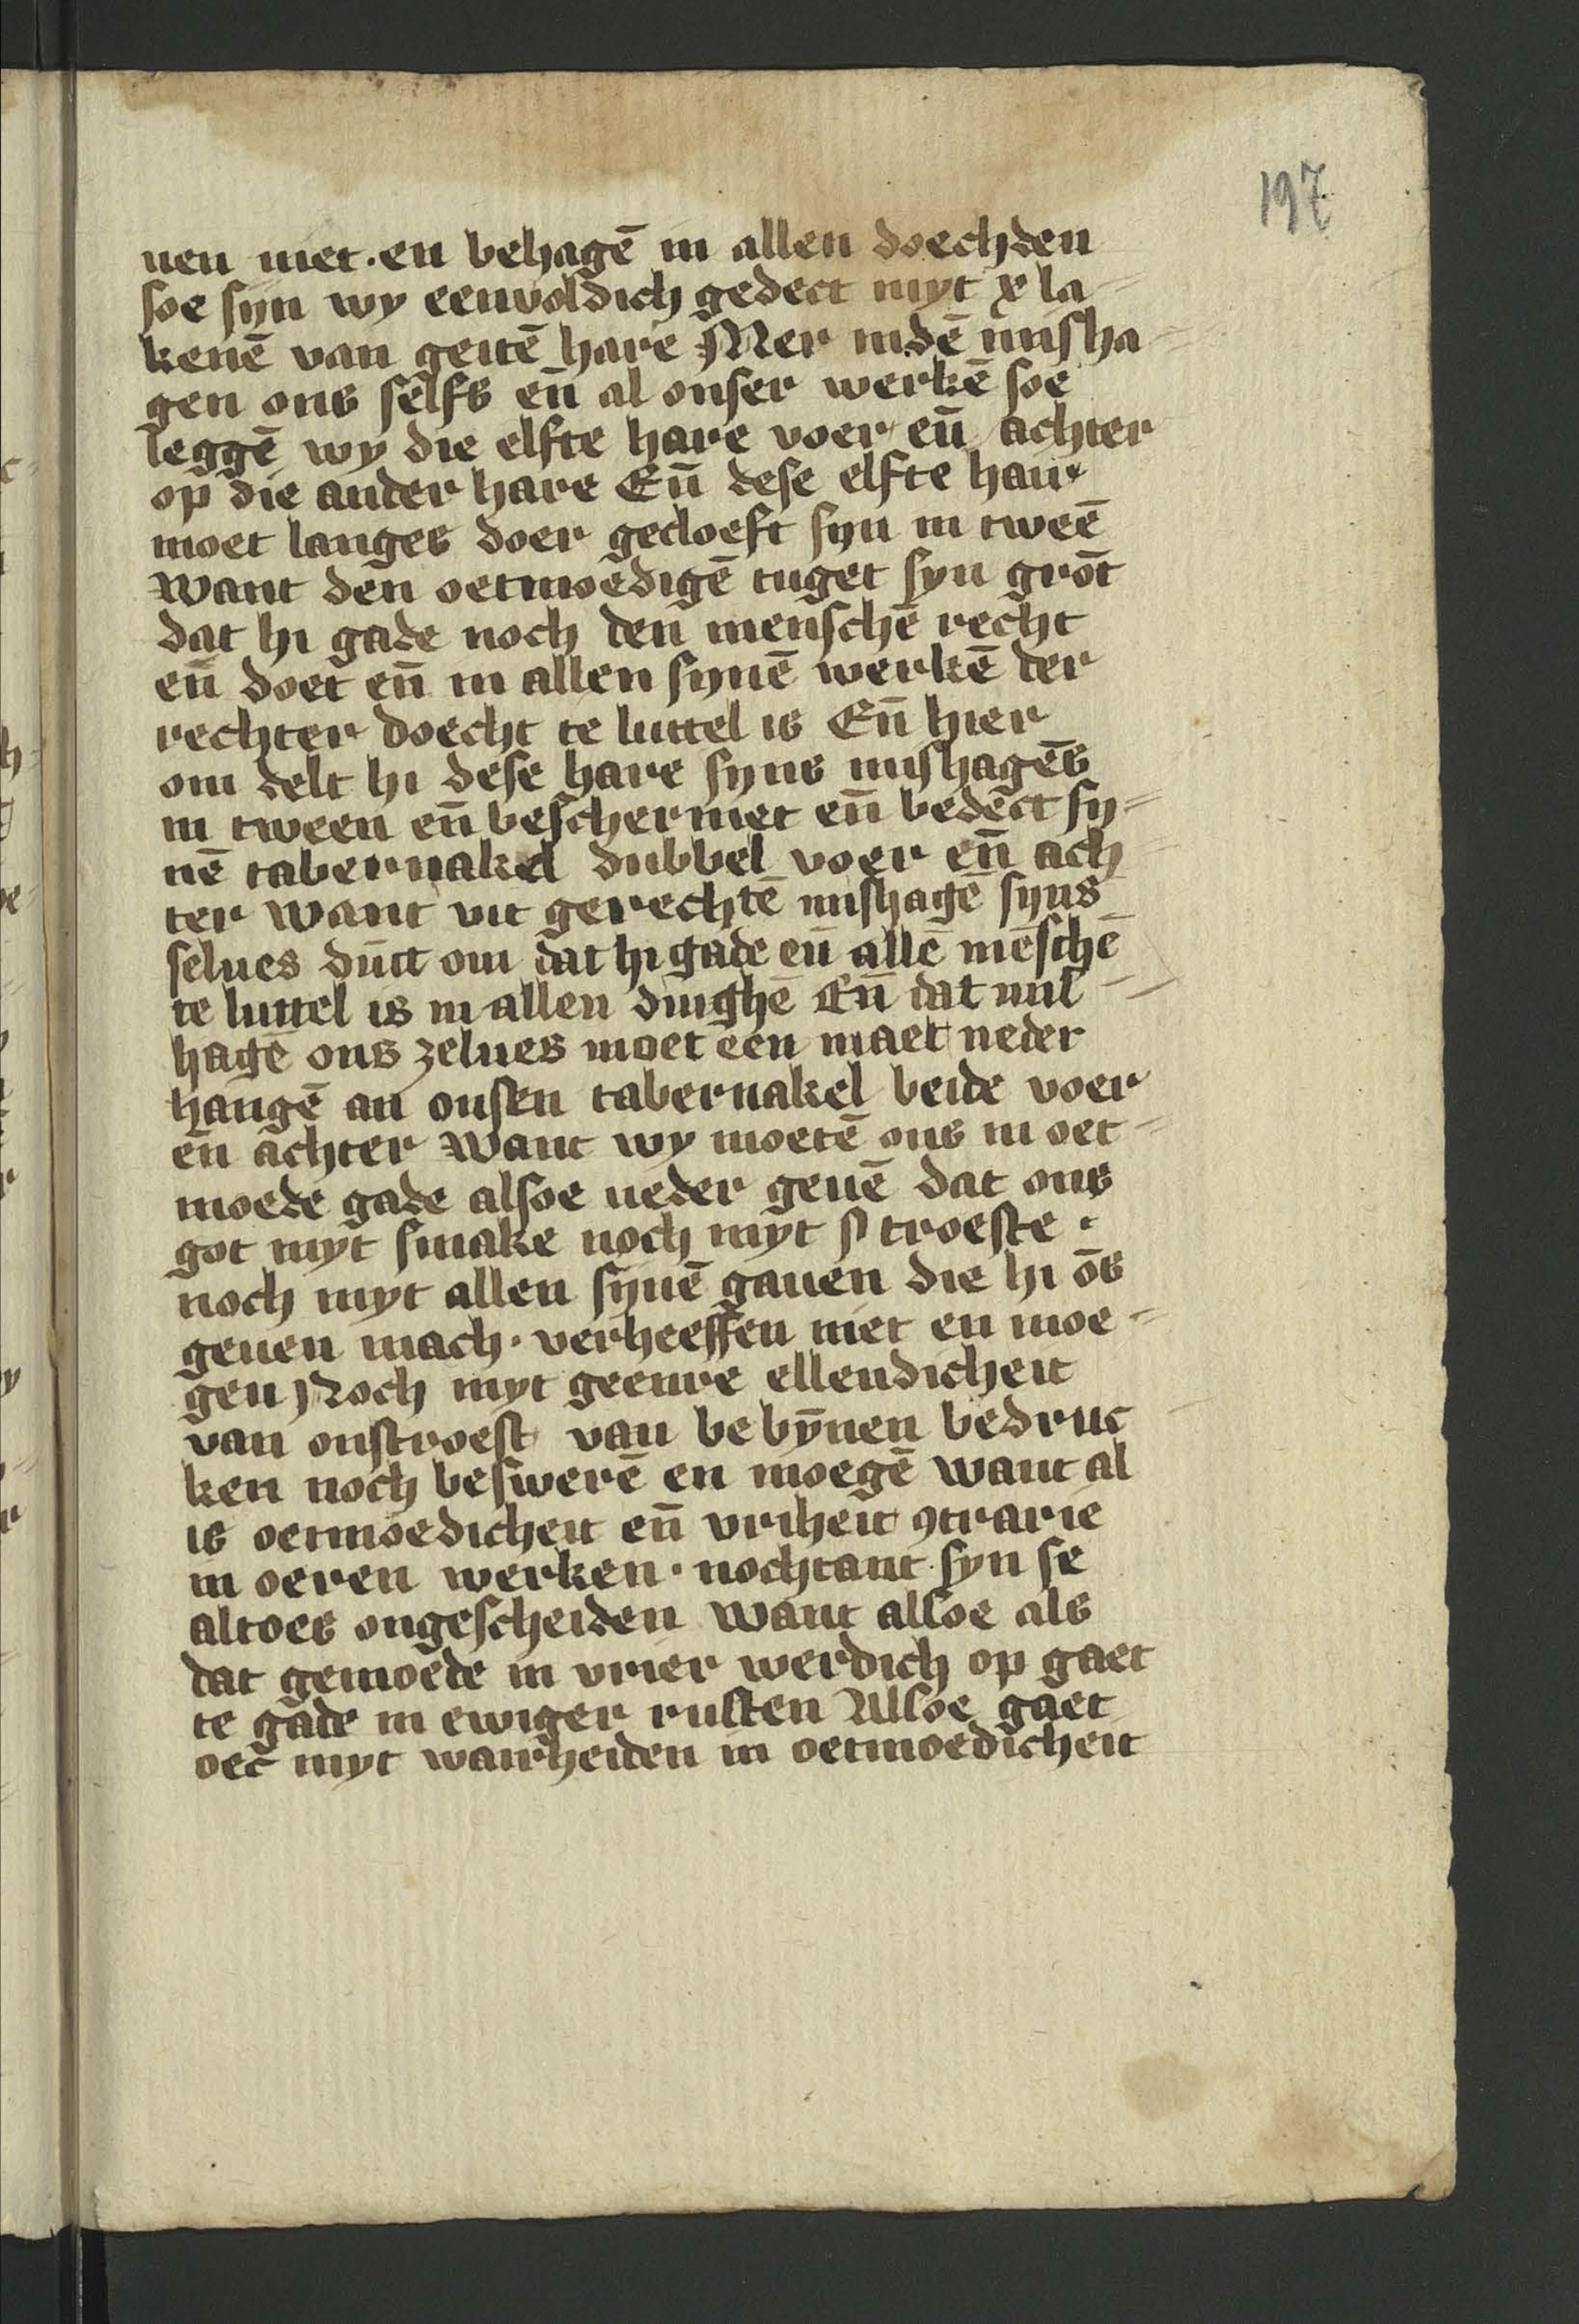 197
uen niet · en behagē in allen doechden
soe syn wy eenvoldich gedect myt x la-
kenē van geitē hare Mer indē misha-
gen ons selfs eñ al onser werkē soe
leggē wy die elfte hare voer eñ achter
op die ander hare Eñ dese elfte hair
moet langes doer gecloeft syn in tweē
Want den oetmoedigē tuget syn grōt
dat hi gade noch den menschē recht
eñ doet eñ in allen synē werkē der
rechter doecht te luttel is Eñ hier
om delt hi dese hare syns mishagēs
in tween eñ beschermet eñ bedect sy-
nē tabernakel dubbel voer eñ ach-
ter want vut gerechtē mishagē syns
selues dūct om dat hi gade eñ allē mēschē
te luttel is in allen dinghē Eñ dat mis-
hagē ons zelues moet een maet neder
hangē an onsen tabernakel beide voer
eñ achter Want wy moetē ons in oet-
moede gade alsoe neder geuē dat ons
got myt smake noch myt troeste ·
noch myt allen synē gauen die hi ōs
geuen mach · verheeffen niet en moe-
gen Noch myt geenre ellendicheit
van onstroest van bebȳnen bedruc-
ken noch beswerē en moegē want al
is oetmoedicheit eñ vriheit 9trarie
in oeren werken · nochtant syn se
altoes ongescheiden want alsoe als
dat gemoede in vrier werdich op gaet
te gade in ewiger rusten Alsoe gaet
oec myt wairheiden in oetmoedicheit